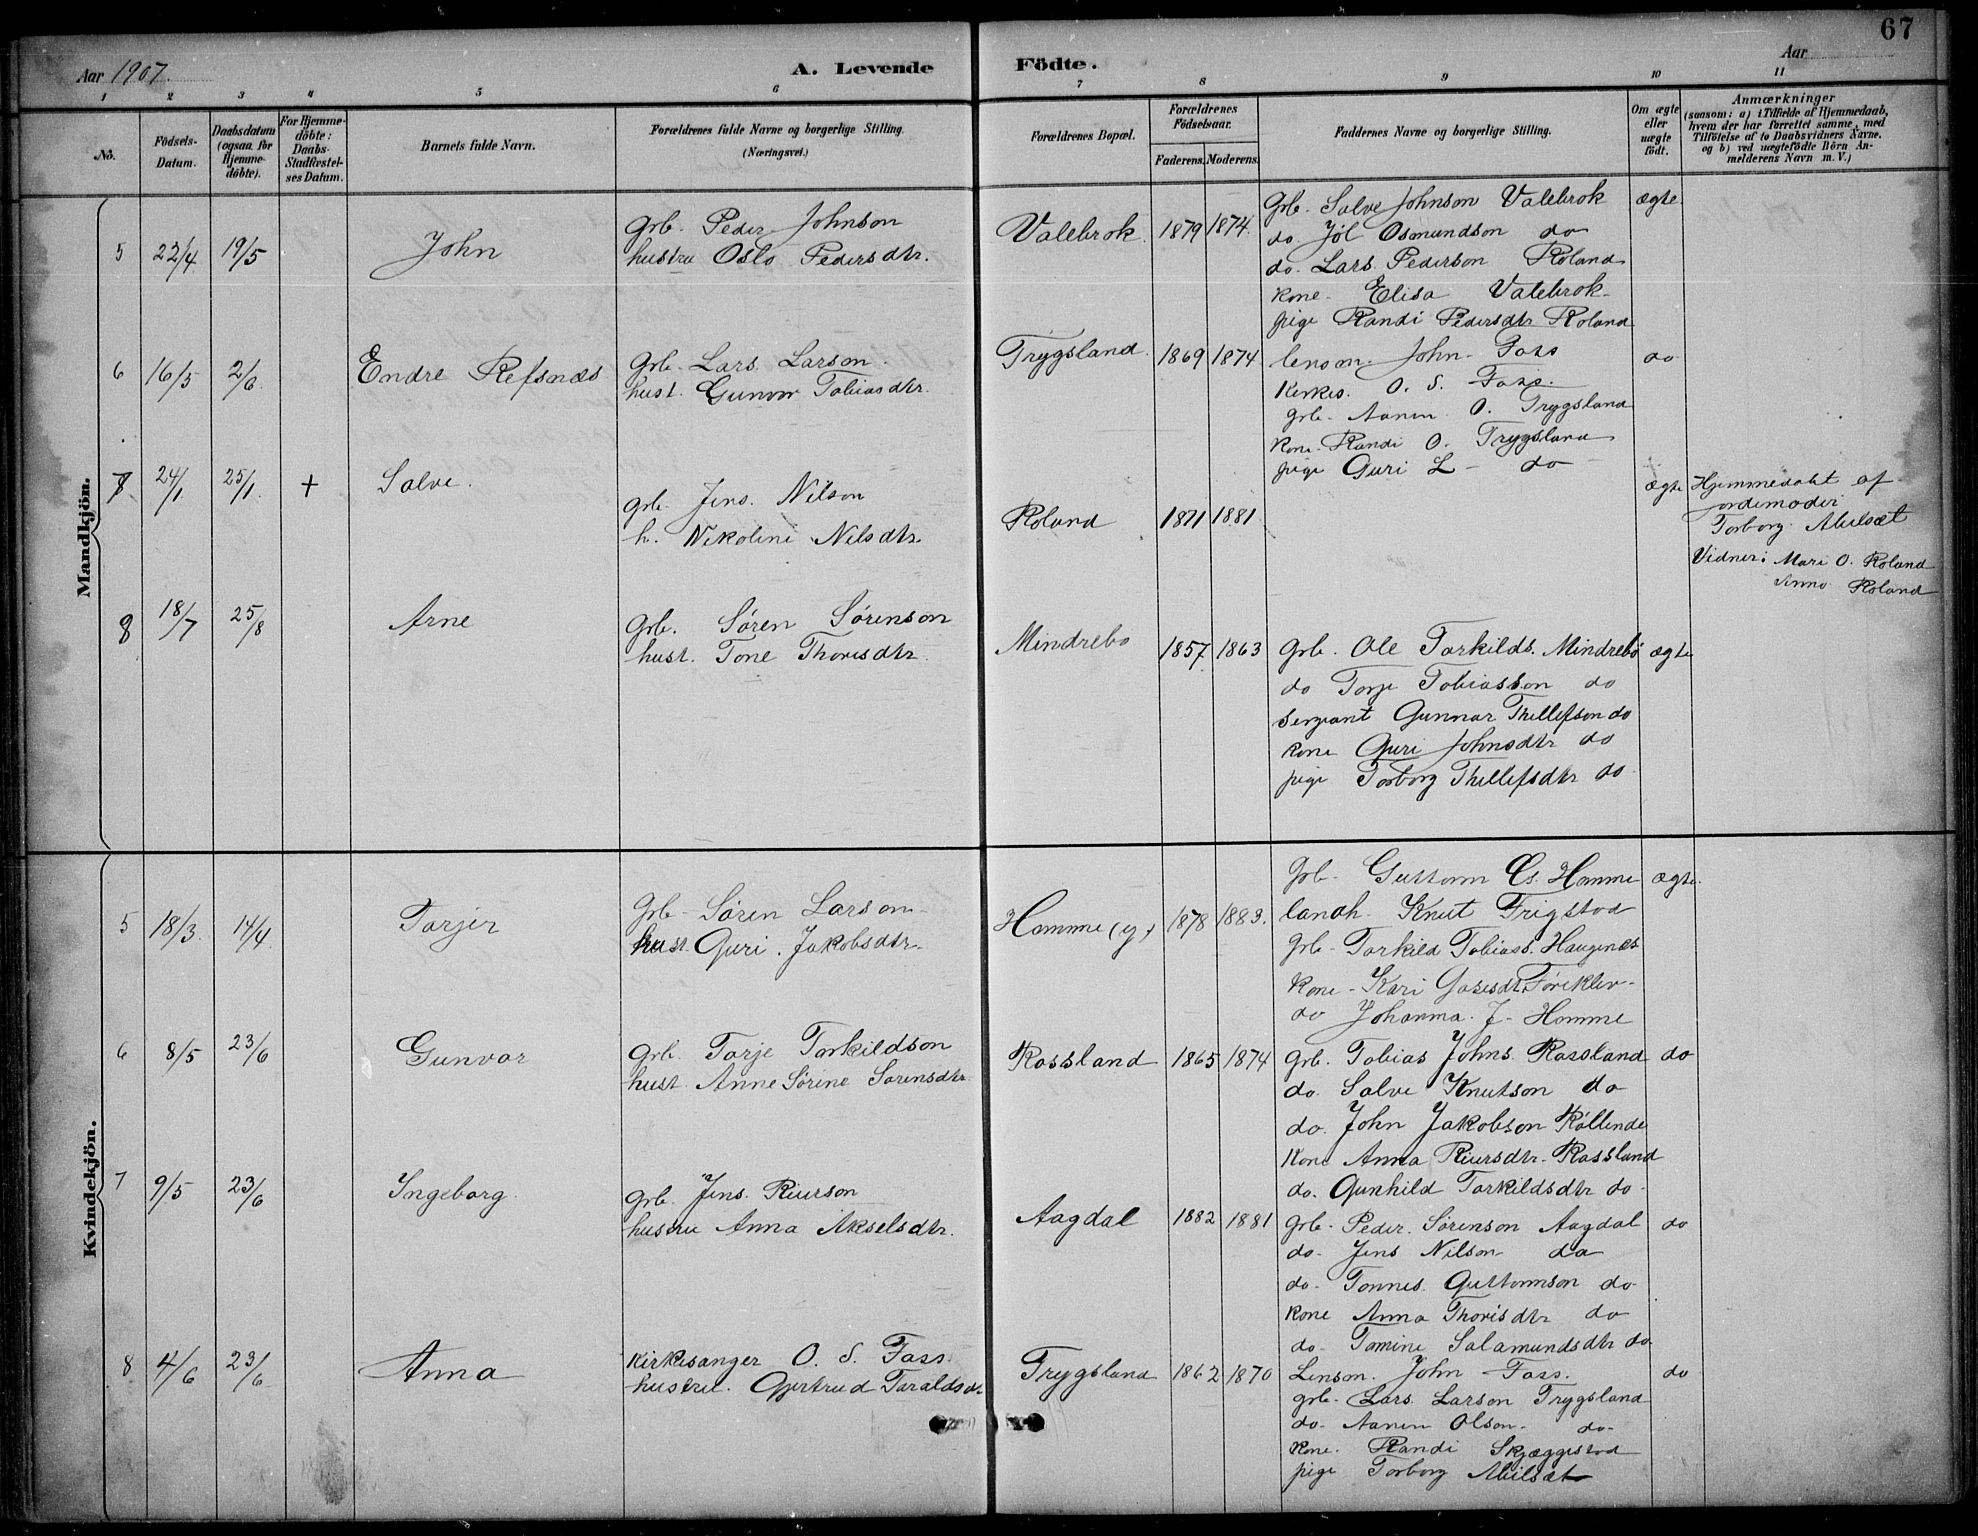 67
Aar 1907.
A. Levende
Födte.
Aar
1 2 3 4 5 6 7 8 9 10 11
No.
Födsels-Datum.
Daabsdatum (ogsaa for Hjemme-döbte).
For Hjemme-döbte: Daabs-Stadfæstel-ses Datum.
Barnets fulde Navn.
Forældrenes fulde Navne og borgerlige Stilling. (Næringsvei.)
Forældrenes Bopæl.
Forældrenes Födselsaar.
Faderens. Moderens.
Faddernes Navne og borgerlige Stilling.
Om ægte eller uægte födt.
Anmærkninger
(saasom: a) i Tilfælde af Hjemmedaab, hvem der har forrettet samme, med Tilföielse af to Daabsvidners Navne. og b) ved uægtefödte Börn An-melderens Navn m. V.)
Mandkjön.
5 22/4 19/5 John
Grb. Peder Johnson
hustru Oslo Pedersdtr.
Valebrok. 1879 1874.
Grb. Salve Johnson Valebrok ægte
do Jöl Osmundson do
do. Lars Pederson Roland
kone. Elisa Valebrok
pige Randi Pedersdtr Roland
6 16/5 2/6 Endre Refsnæs
Grb. Lars Larson.
hust. Gunvor Tobiasdtr.
Trygsland. 1869 1874
lensm. John Foss do
Kirkes. O. S. Foss.
grb. Aanen O. Trygsland
kone Randi O. Trygsland
pige Guri L - do
7 24/1 25/1. + Salve.
grb. Jens. Nilson
h. Nikoline Nilsdtr.
Roland 1871 1881
ægte
Hjemmedøbt af
jordemoder
Torborg
Vidner: Mari O. Roland
Anna Roland
8 18/7 25/8 Arne
Grb. Søren Sørenson
hust. Tone Thorisdtr.
Mindrebo 1857. 1863
Grb. Ole Torkilds. Mindrebö ægte
do Torje Tobiasson do
Sergeant Gunnar Thellefson do
kone Guri Johnsdtr do
pige Torborg Thellefsdtr do
Kvindekjön.
5 18/3. 14/4. Torjer
Grb. Søren Larson
hust Guri. Jakobsdtr.
Homme (y) 1878 1883.
Grb. Guttorm Homme ægte.
landh. Knut Frigstod
grb. Torkild Tobiass. Haugenæs
kone - Kari
do Johanna. J- Homme
6 8/5 23/6 Gunvor
Grb. Torje Torkildson
hust. Anne Sørine Sørensdtr.
Rossland 1865 1874
grb. Tobias Johns. Rossland do
do. Salve Knutson do
do. John Jakobson
Kone Anna Reiersdtr. Rossland
do. Gunhild Torkildsdtr do
7 9/5 23/6 Ingeborg.
grb. Jens. Reierson
hustru Anna Akselsdtr.
Aagdal 1882 1881
Grb. Peder. Sørenson Aagdal do
do. Jens Nilson do
do. Tonnes. Guttormson do
kone Anna Thorisdtr do
do. Tomine Salamundsdtr do.
8 4/6 23/6 Anna
Kirkesanger O. S. Foss.
hustru. Gjertrud Taraldsd.
Trygsland 1862 1870
Lensm. John Foss. do
grb. Lars Larson Trygsland
do. Aanen Olson. do.
kone. Randi Skjæggestod
pige Torborg